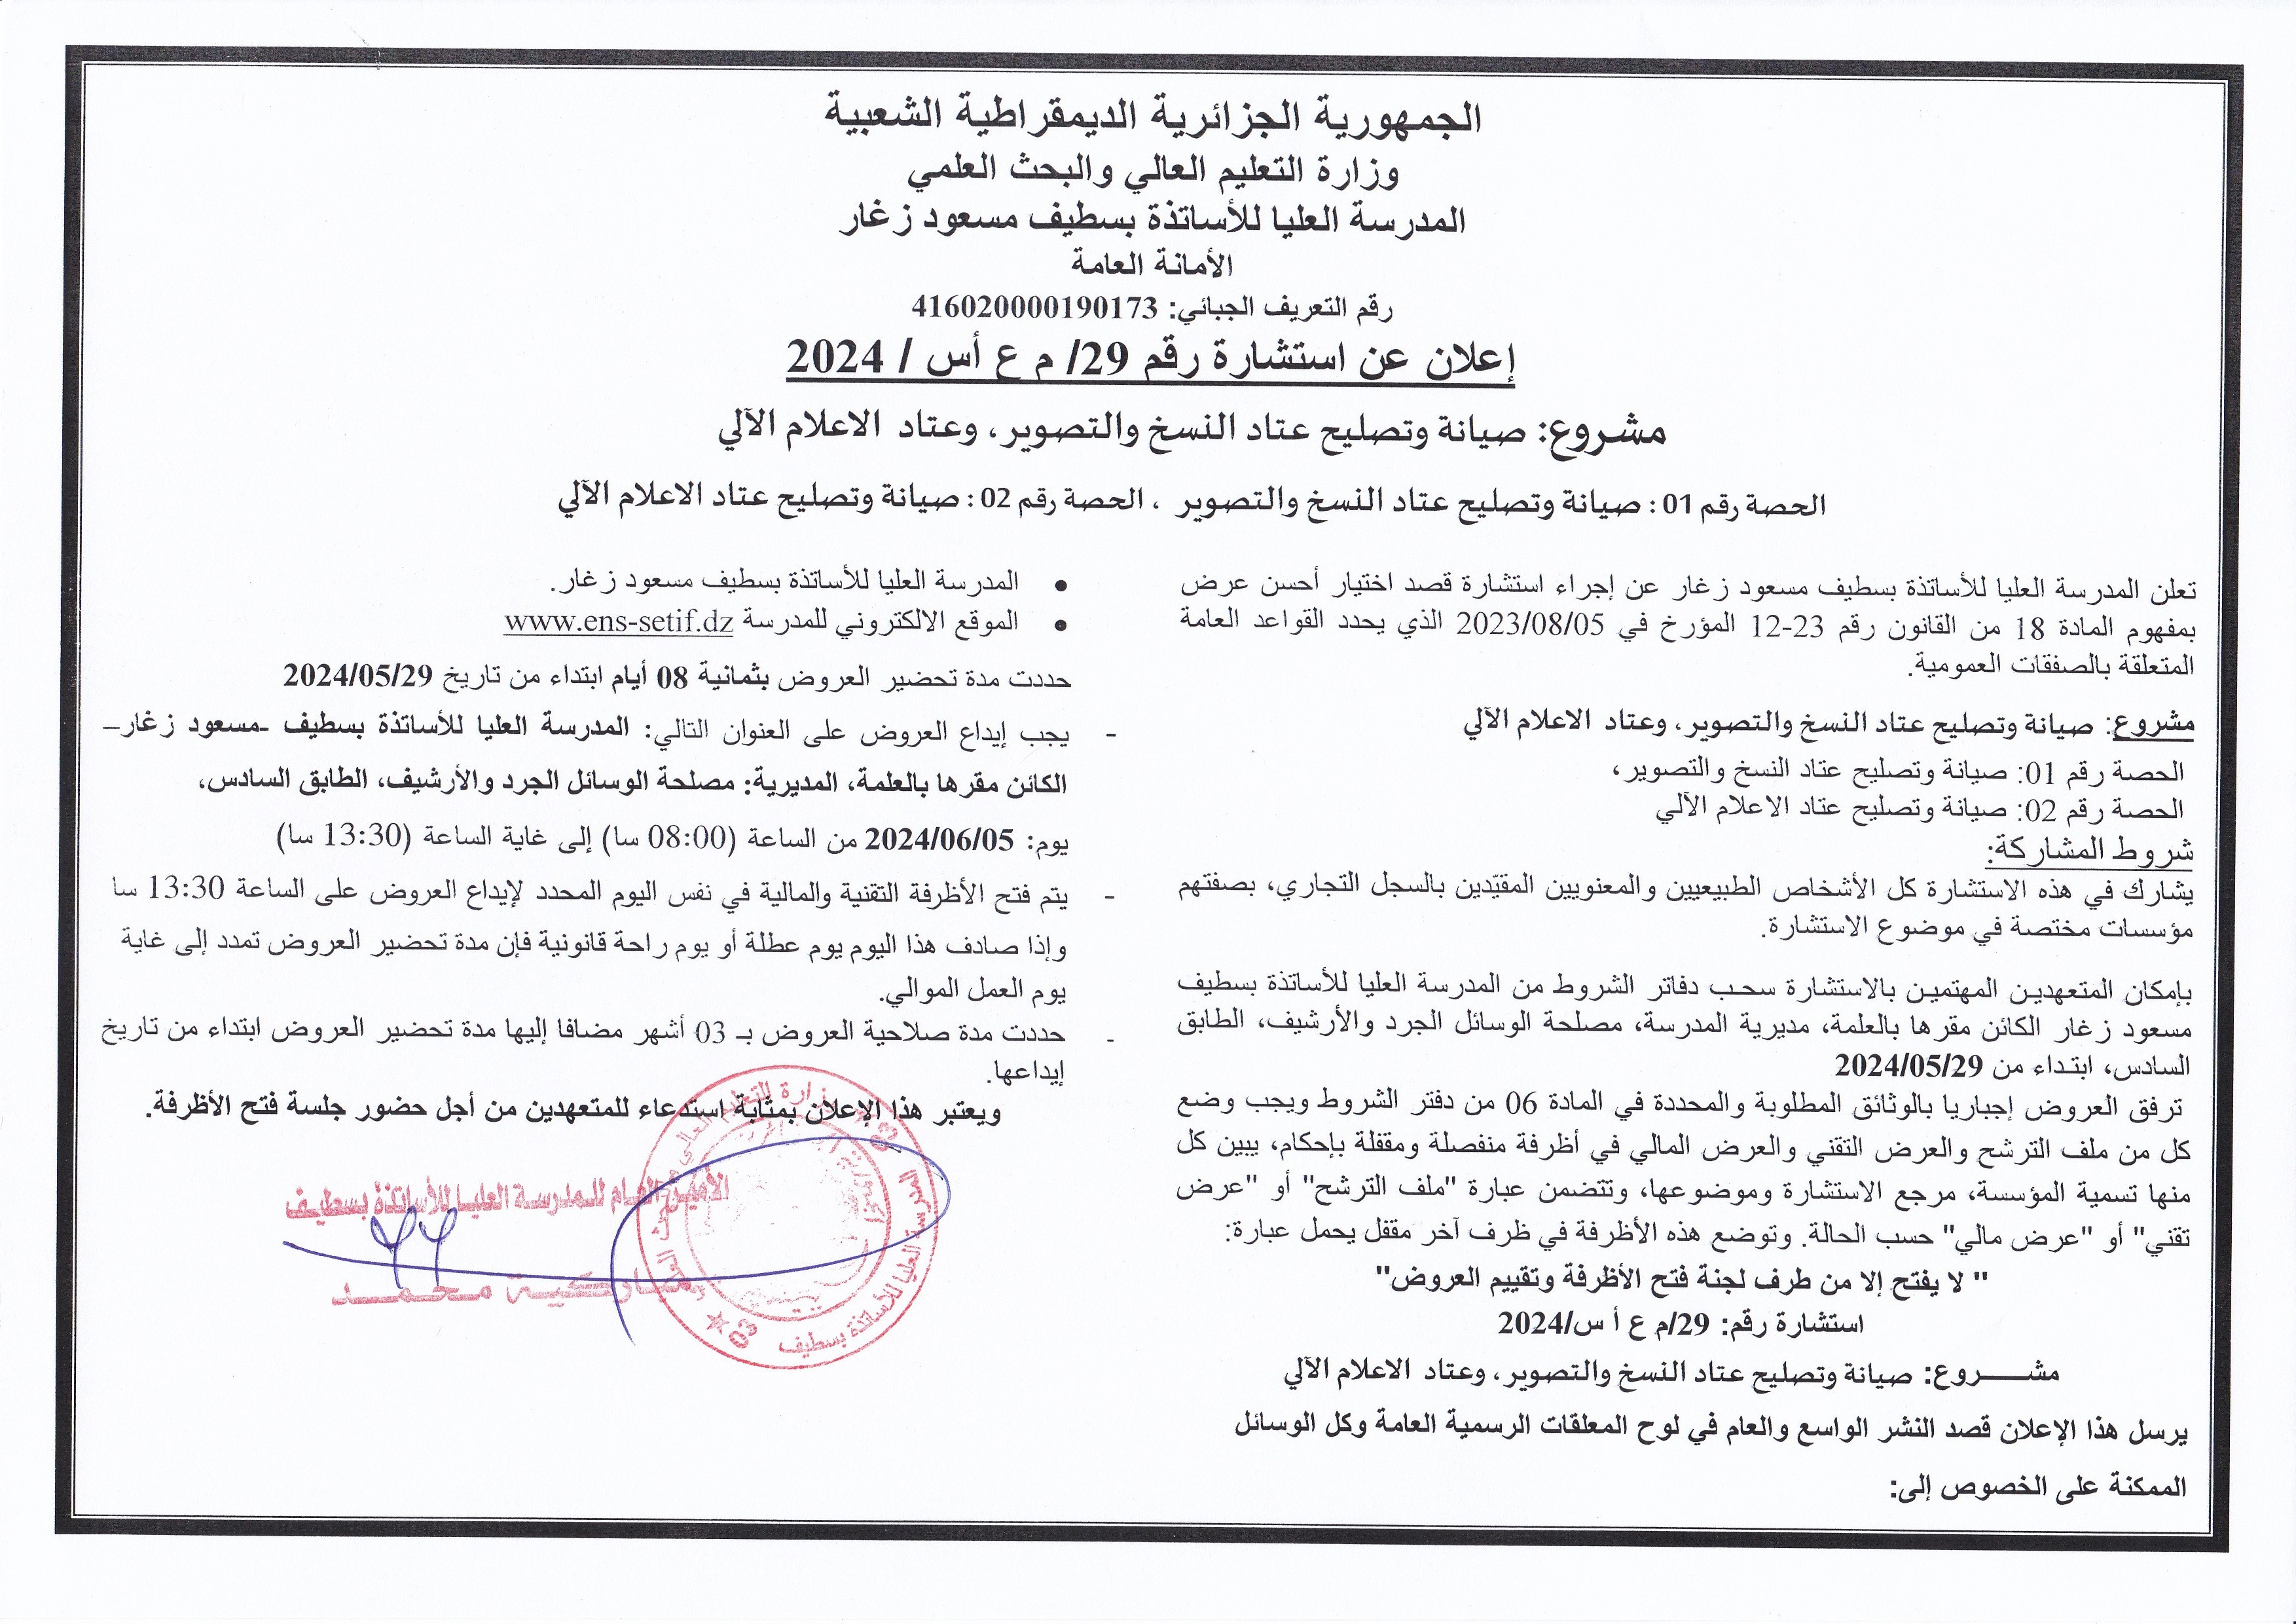 الجمهورية الجزائرية الديمقراطية الشعبية
وزارة التعليم العالي والبحث العلمي
المدرسة العليا للأساتذة بسطيف مسعود زغار
الأمانة العامة
رقم التعريف الجبائي: 416020000190173
إعلان عن استشارة رقم 29/ م ع أس / 2024
مشروع: صيانة وتصليح عتاد النسخ والتصوير، وعتاد الاعلام الآلي
الحصة رقم 01 : صيانة وتصليح عتاد النسخ والتصوير ، الحصة رقم 02 : صيانة وتصليح عتاد الاعلام الآلي
تعلن المدرسة العليا للأساتذة بسطيف مسعود زغار عن إجراء استشارة قصد اختيار أحسن عرض
بمفهوم المادة 18 من القانون رقم 23-12 المؤرخ في 2023/08/05 الذي يحدد القواعد العامة
المتعلقة بالصفقات العمومية.
مشروع: صيانة وتصليح عتاد النسخ والتصوير، وعتاد الاعلام الآلي
الحصة رقم 01: صيانة وتصليح عتاد النسخ والتصوير،
الحصة رقم 02: صيانة وتصليح عتاد الاعلام الآلي
شروط المشاركة:
يشارك في هذه الاستشارة كل الأشخاص الطبيعيين والمعنويين المقيّدين بالسجل التجاري، بصفتهم
مؤسسات مختصة في موضوع الاستشارة.
بإمكان المتعهدين المهتمين بالاستشارة سحب دفاتر الشروط من المدرسة العليا للأساتذة بسطيف
مسعود زغار الكائن مقرها بالعلمة، مديرية المدرسة، مصلحة الوسائل الجرد والأرشيف، الطابق
السادس، ابتداء من 2024/05/29
ترفق العروض إجباريا بالوثائق المطلوبة والمحددة في المادة 06 من دفتر الشروط ويجب وضع
كل من ملف الترشح والعرض التقني والعرض المالي في أظرفة منفصلة ومقفلة بإحكام، يبين كل
منها تسمية المؤسسة، مرجع الاستشارة وموضوعها، وتتضمن عبارة "ملف الترشح" أو "عرض
تقني" أو "عرض مالي" حسب الحالة. وتوضع هذه الأظرفة في ظرف آخر مقفل يحمل عبارة:
" لا يفتح إلا من طرف لجنة فتح الأظرفة وتقييم العروض"
استشارة رقم: 29/م ع أ س/2024
مشـــــروع: صيانة وتصليح عتاد النسخ والتصوير، وعتاد الاعلام الآلي
يرسل هذا الإعلان قصد النشر الواسع والعام في لوح المعلقات الرسمية العامة وكل الوسائل
الممكنة على الخصوص إلى:
• المدرسة العليا للأساتذة بسطيف مسعود زغار.
• الموقع الالكتروني للمدرسة www.ens-setif.dz
حددت مدة تحضير العروض بثمانية 08 أيام ابتداء من تاريخ 2024/05/29
- يجب إيداع العروض على العنوان التالي: المدرسة العليا للأساتذة بسطيف -مسعود زغار–
الكائن مقرها بالعلمة، المديرية: مصلحة الوسائل الجرد والأرشيف، الطابق السادس،
يوم: 2024/06/05 من الساعة (08:00 سا) إلى غاية الساعة (13:30 سا)
- يتم فتح الأظرفة التقنية والمالية في نفس اليوم المحدد لإيداع العروض على الساعة 13:30 سا
وإذا صادف هذا اليوم يوم عطلة أو يوم راحة قانونية فإن مدة تحضير العروض تمدد إلى غاية
يوم العمل الموالي.
- حددت مدة صلاحية العروض بـ 03 أشهر مضافا إليها مدة تحضير العروض ابتداء من تاريخ
إيداعها.
ويعتبر هذا الإعلان بمثابة استدعاء للمتعهدين من أجل حضور جلسة فتح الأظرفة.
الأمين العام للمدرسة العليا للأساتذة بسطيف
محمد
المدرسة العليا للأساتذة بسطيف
03